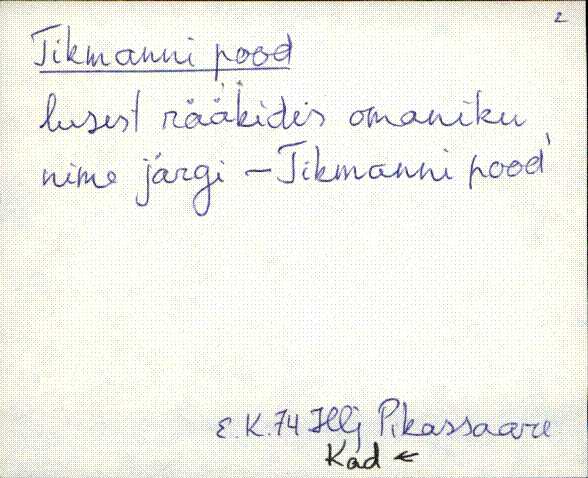 2
Tikmanni pood
lusest rääkides omaniku
nime järgi – Tikmanni pood
E.K.74 Hlj Pikassaare
Kad ←